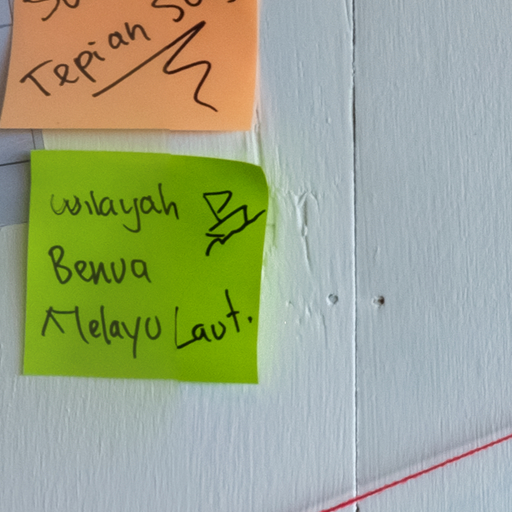 Tepian
Wilayah
Benua
Melayu Laut.